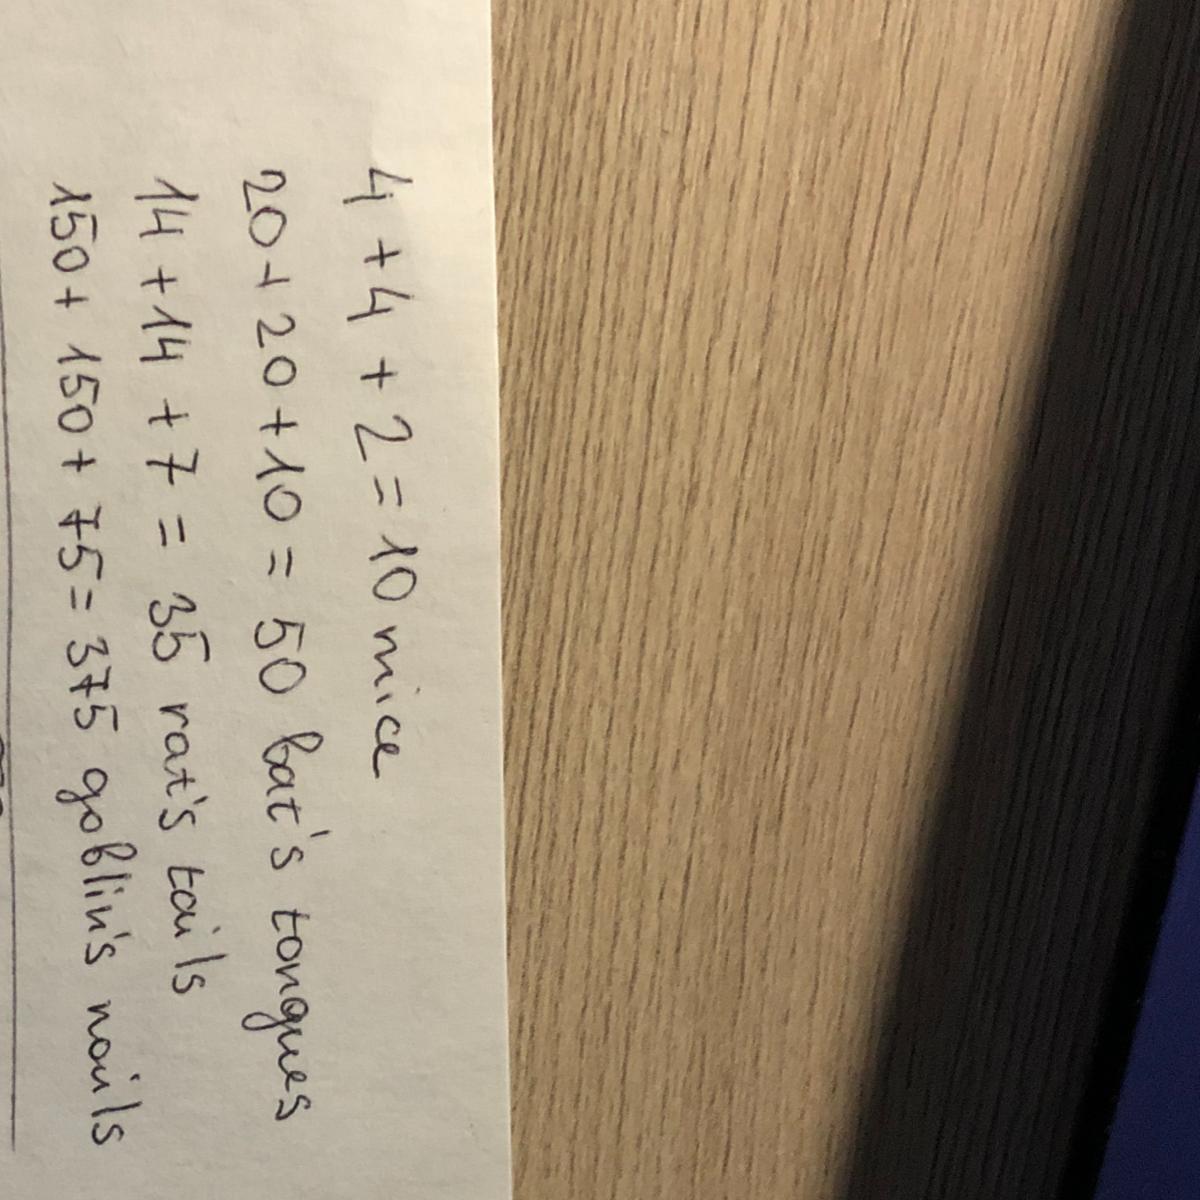 4 + 4 + 2 = 10 mice
20 + 20 + 10 = 50 bat's tongues
14 + 14 + 7 = 35 rat's tails
150 + 150 + 75 = 375 goblin's nails